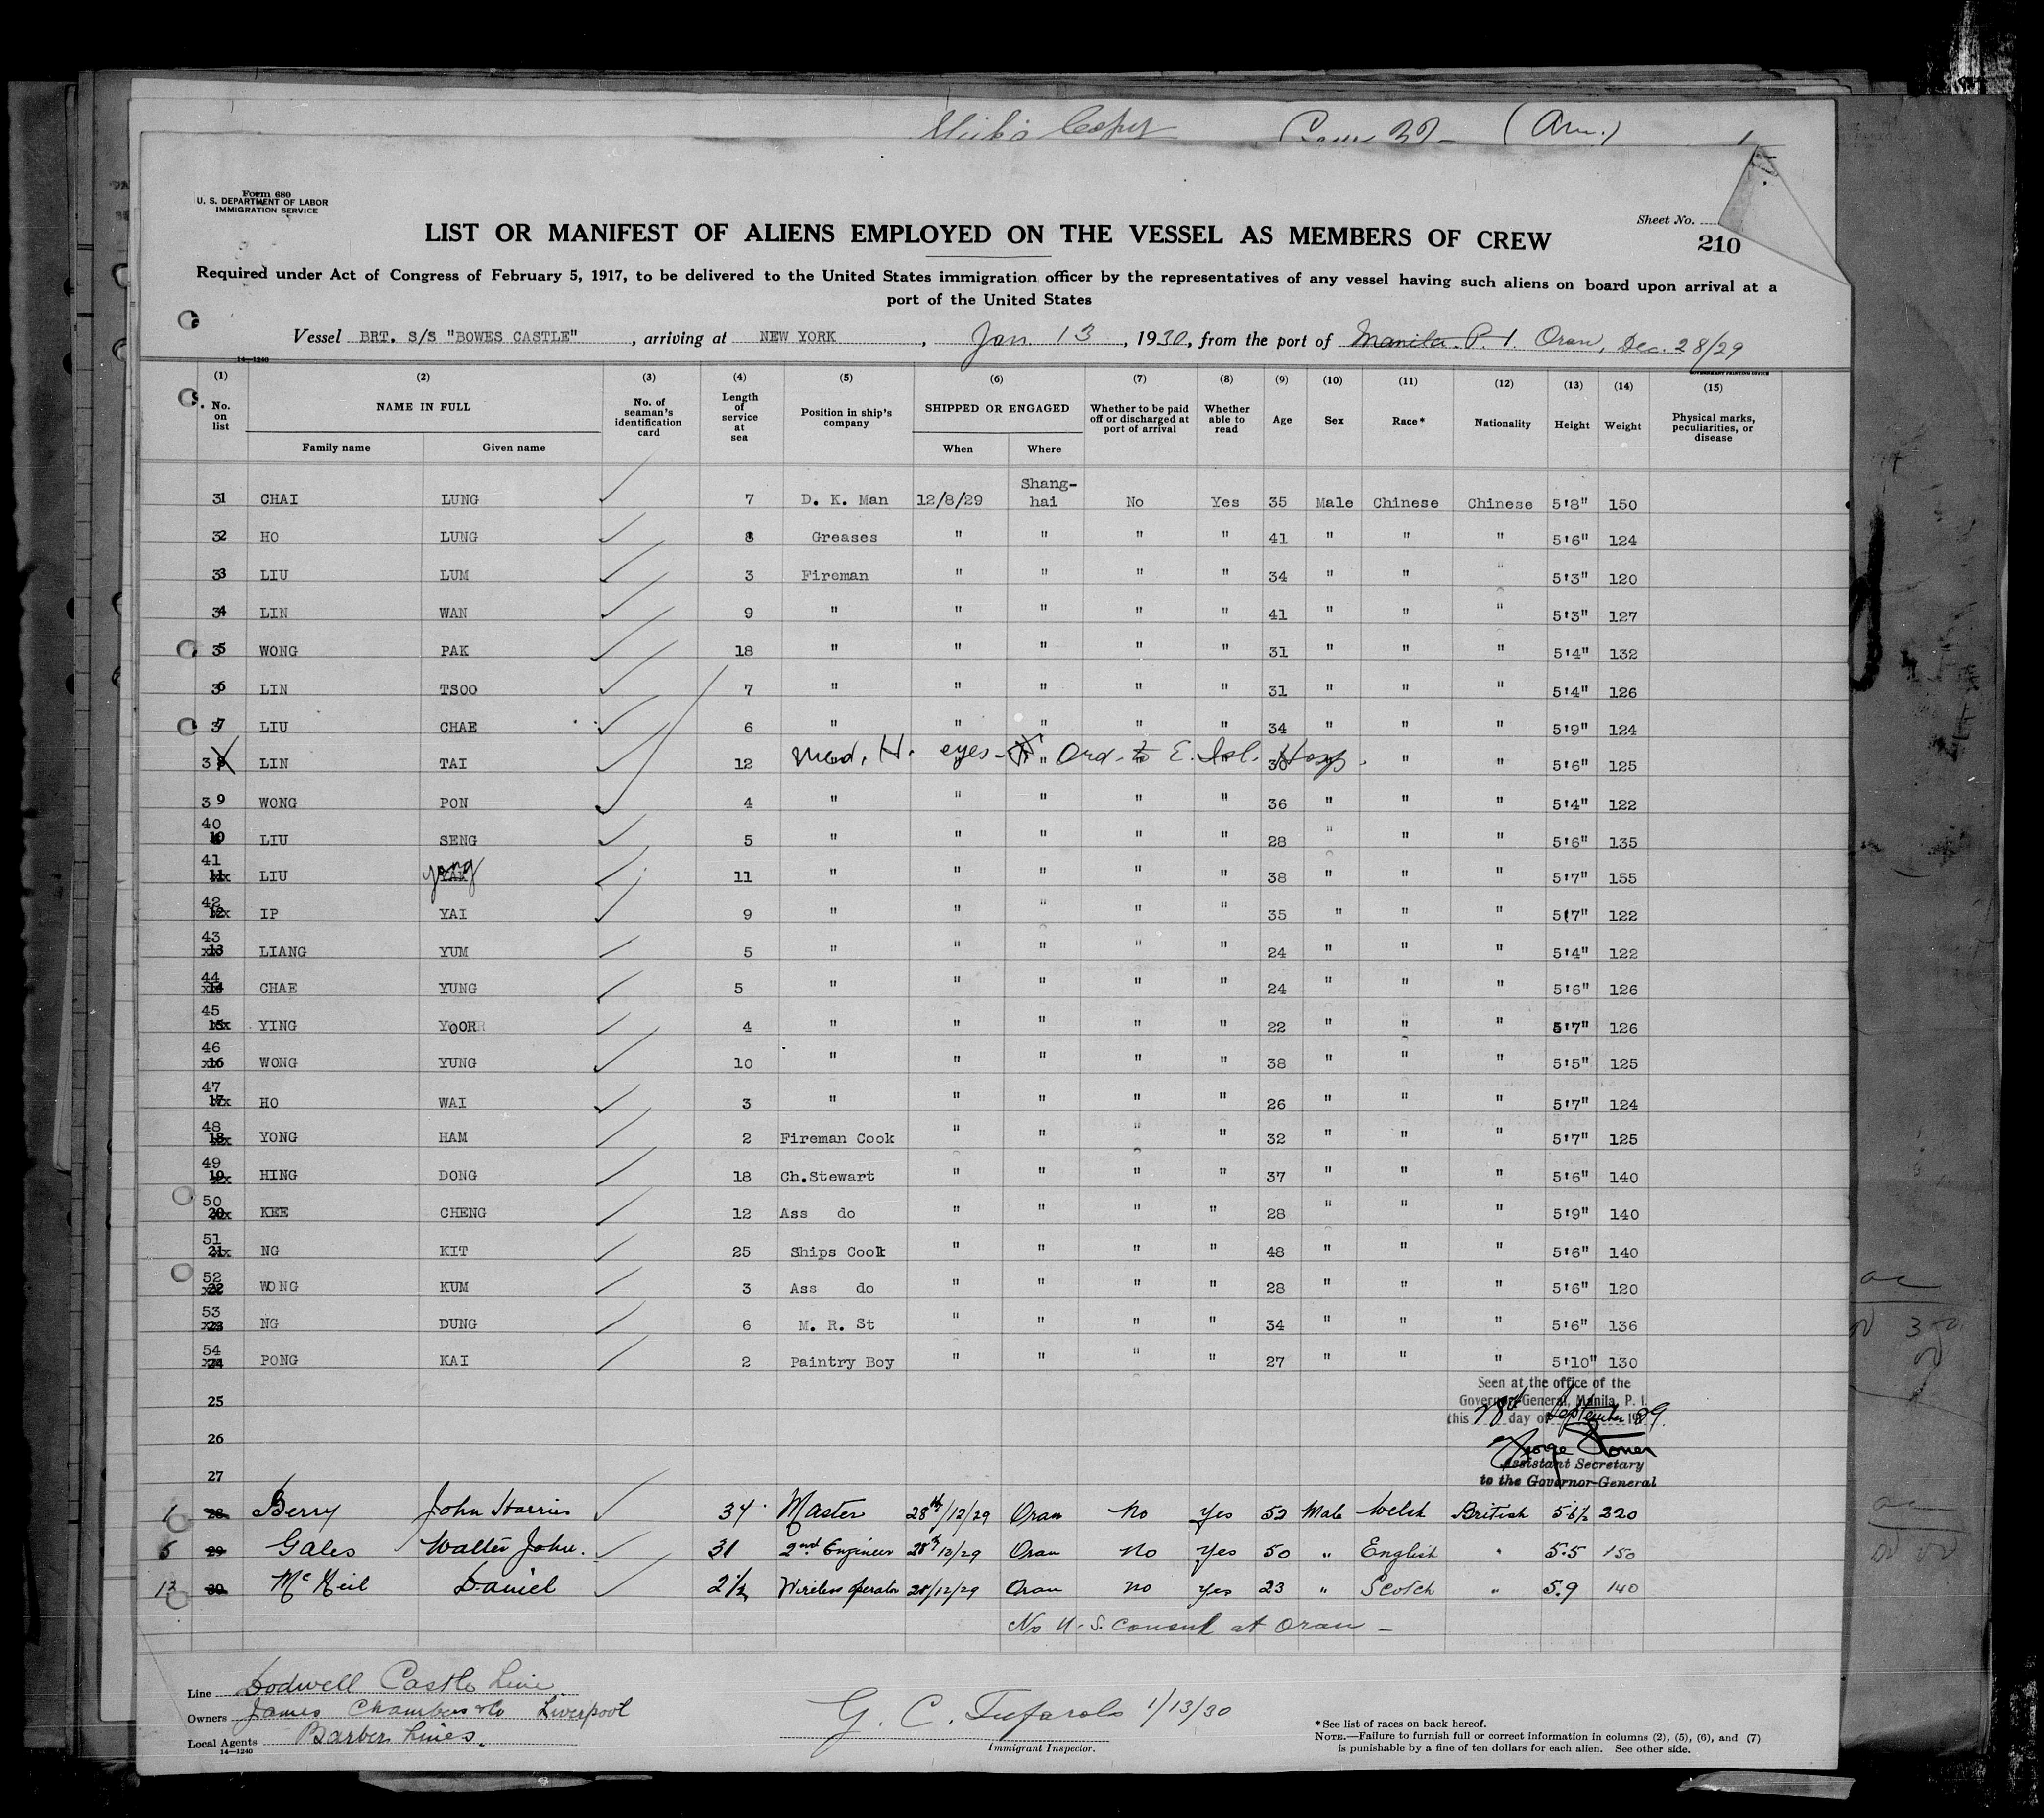 Crew 37- (Am.)
Form 680
U. S. DEPARTMENT OF LABOR
IMMIGRATION SERVICE
Sheet No.
210
LIST OR MANIFEST OF ALIENS EMPLOYED ON THE VESSEL AS MEMBERS OF CREW
Required under Act of Congress of February 5, 1917, to be delivered to the United States immigration officer by the representatives of any vessel having such aliens on board upon arrival at a
port of the United States
Vessel BRT. S/S "BOWES CASTLE" , arriving at NEW YORK , Jan 13 , 1930, from the port of Manila P. I. Oran, Dec. 28/29
14—1240
GOVERNMENT PRINTING OFFICE
(1) (2) (3) (4) (5) (6) (7) (8) (9) (10) (11) (12) (13) (14) (15)
No. on list NAME IN FULL No. of seaman's identification card Length of service at sea Position in ship's company SHIPPED OR ENGAGED Whether to be paid off or discharged at port of arrival Whether able to read Age Sex Race* Nationality Height Weight Physical marks, peculiarities, or disease
Family name Given name When Where
31 CHAI LUNG 7 D. K. Man 12/8/29 Shang-hai No Yes 35 Male Chinese Chinese 5'8" 150
32 HO LUNG 8 Greases " " " " 41 " " " 5'6" 124
33 LIU LUM 3 Fireman " " " " 34 " " " 5'3" 120
34 LIN WAN 9 " " " " " 41 " " " 5'3" 127
35 WONG PAK 18 " " " " " 31 " " " 5'4" 132
36 LIN TSOO 7 " " " " " 31 " " " 5'4" 126
37 LIU CHAE 6 " " " " " 34 " " " 5'9" 124
38 LIN TAI 12 Med. H. eyes - Ord. to E. Isl. Hosp. 30 " " 5'6" 125
39 WONG PON 4 " " " " " 36 " " " 5'4" 122
40 10 LIU SENG 5 " " " " " 28 " " " 5'6" 135
41 11 LIU yang 11 " " " " " 38 " " " 5'7" 155
42 12 IP YAI 9 " " " " " 35 " " " 5'7" 122
43 13 LIANG YUM 5 " " " " " 24 " " " 5'4" 122
44 14 CHAE YUNG 5 " " " " " 24 " " " 5'6" 126
45 15 YING YOOR 4 " " " " " 22 " " " 5'7" 126
46 16 WONG YUNG 10 " " " " " 38 " " " 5'5" 125
47 17 HO WAI 3 " " " " " 26 " " " 5'7" 124
48 18 YONG HAM 2 Fireman Cook " " " " 32 " " " 5'7" 125
49 19 HING DONG 18 Ch.Stewart " " " " 37 " " " 5'6" 140
50 20 KEE CHENG 12 Ass do " " " " 28 " " " 5'9" 140
51 21 NG KIT 25 Ships Cook " " " " 48 " " " 5'6" 140
52 22 WONG KUM 3 Ass do " " " " 28 " " " 5'6" 120
53 23 NG DUNG 6 M. R. St " " " " 34 " " " 5'6" 136
54 24 PONG KAI 2 Paintry Boy " " " " 27 " " " 5'10" 130
Seen at the office of the
25 Governor-General, Manila, P. I.
this 28th day of September 1929.
26 George
Assistant Secretary
27 to the Governor-General
1 28 Berry John Harris 34 Master 28th/12/29 Oran No Yes 52 Male Welsh British 5.6½ 220
5 29 Gales Walter John. 31 2nd Engineer 28th/12/29 Oran No Yes 50 " English " 5.5 150
13 30 McNeil Daniel 2½ Wireless operator 28/12/29 Oran no yes 23 " Scotch " 5.9 140
No U.S. Consul at Oran -
Line Dodwell Castle Line
Owners James Chambers & Co Liverpool
Local Agents Barber Lines.
14—1240
G. C. Tufarolo 1/13/30
Immigrant Inspector.
*See list of races on back hereof.
NOTE.—Failure to furnish full or correct information in columns (2), (5), (6), and (7)
is punishable by a fine of ten dollars for each alien. See other side.